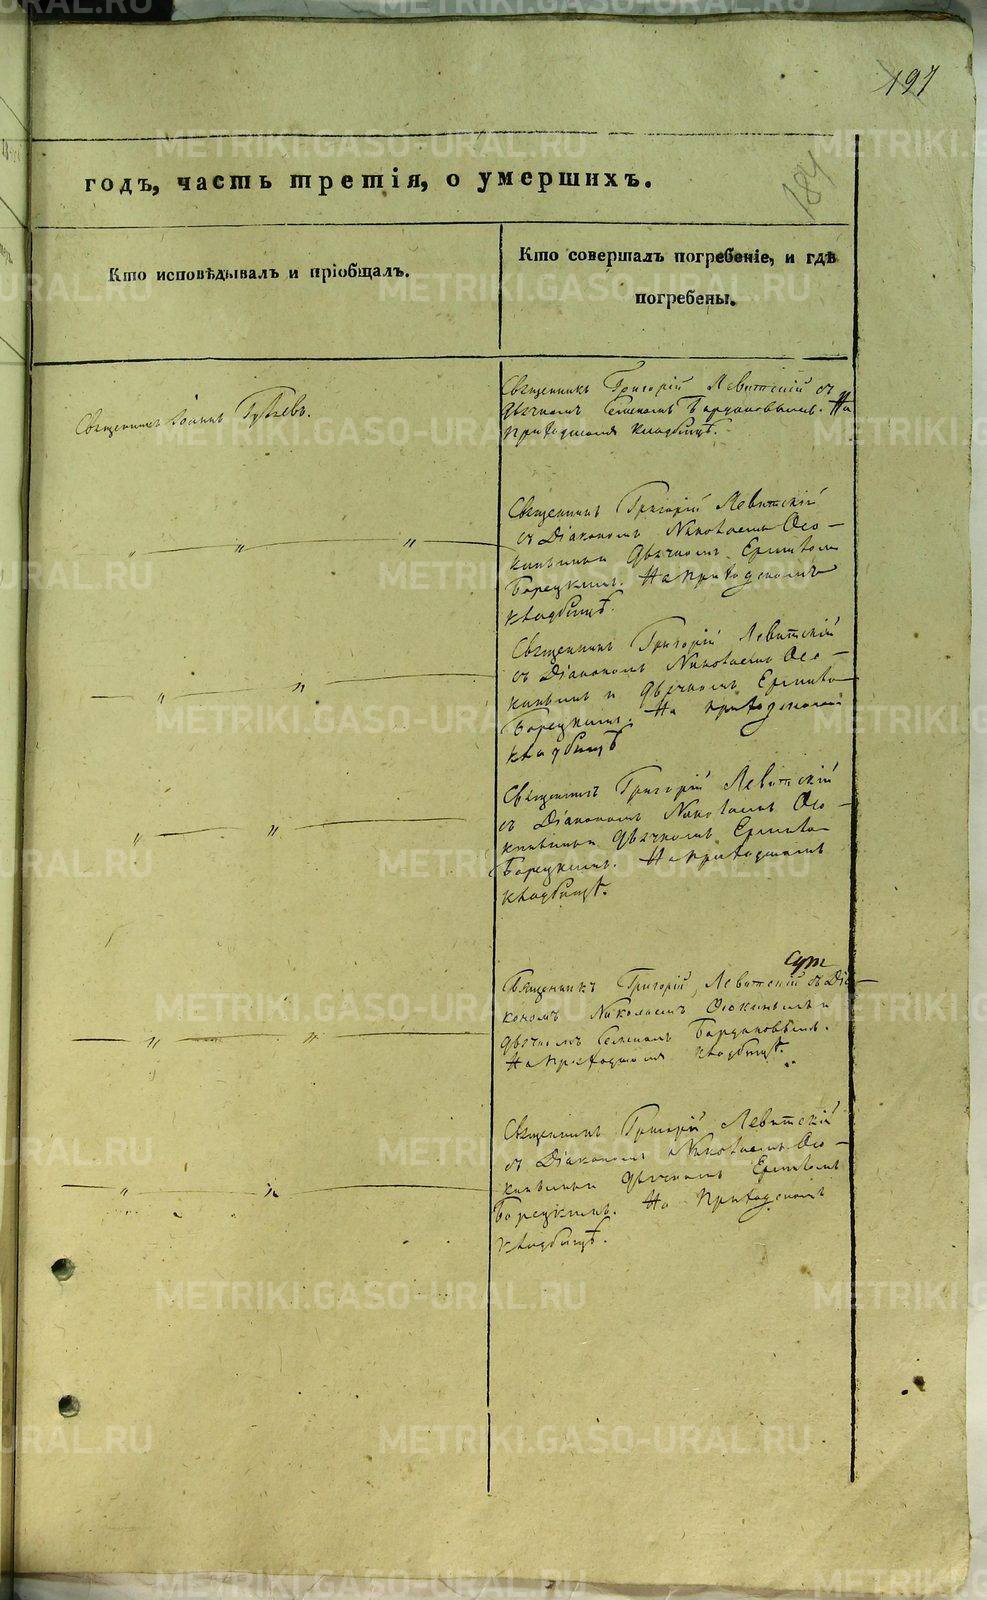 197
184
годъ, часть третія, о умершихъ.
Кто исповѣдывалъ и пріобщалъ.
Кто совершалъ погребеніе, и гдѣ
погребены.
Священникъ Іоаннъ
Священникъ Григорій Левитскій съ
Дьячкомъ Семеномъ Бардановымъ. На
приходскомъ кладбищѣ.
Священникъ Григорій Левитскій
съ Діакономъ Николаемъ Осо-
кинымъ и Дьячкомъ
Борецкимъ. На приходскомъ
кладбищѣ.
Священникъ Григорій Левитскій
съ Діакономъ Николаемъ Осо-
кинымъ и Дьячкомъ
Борецкимъ. На приходскомъ
кладбищѣ
Священникъ Григорій Левитскій
съ Діакономъ Николаемъ Осо-
кинымъ и Дьячкомъ
Борецкимъ. На приходскомъ
кладбищѣ.
Священникъ Григорій Левитскій съ Діа-
кономъ Николаемъ Осокинымъ и
Дьячкомъ Семеномъ Бардановымъ.
На приходскомъ кладбищѣ.
Священникъ Григорій Левитскій
съ Діакономъ Николаемъ Осо-
кинымъ и Дьячкомъ
Борецкимъ. На приходскомъ
кладбищѣ.
METRIKI.GASO-URAL.RU